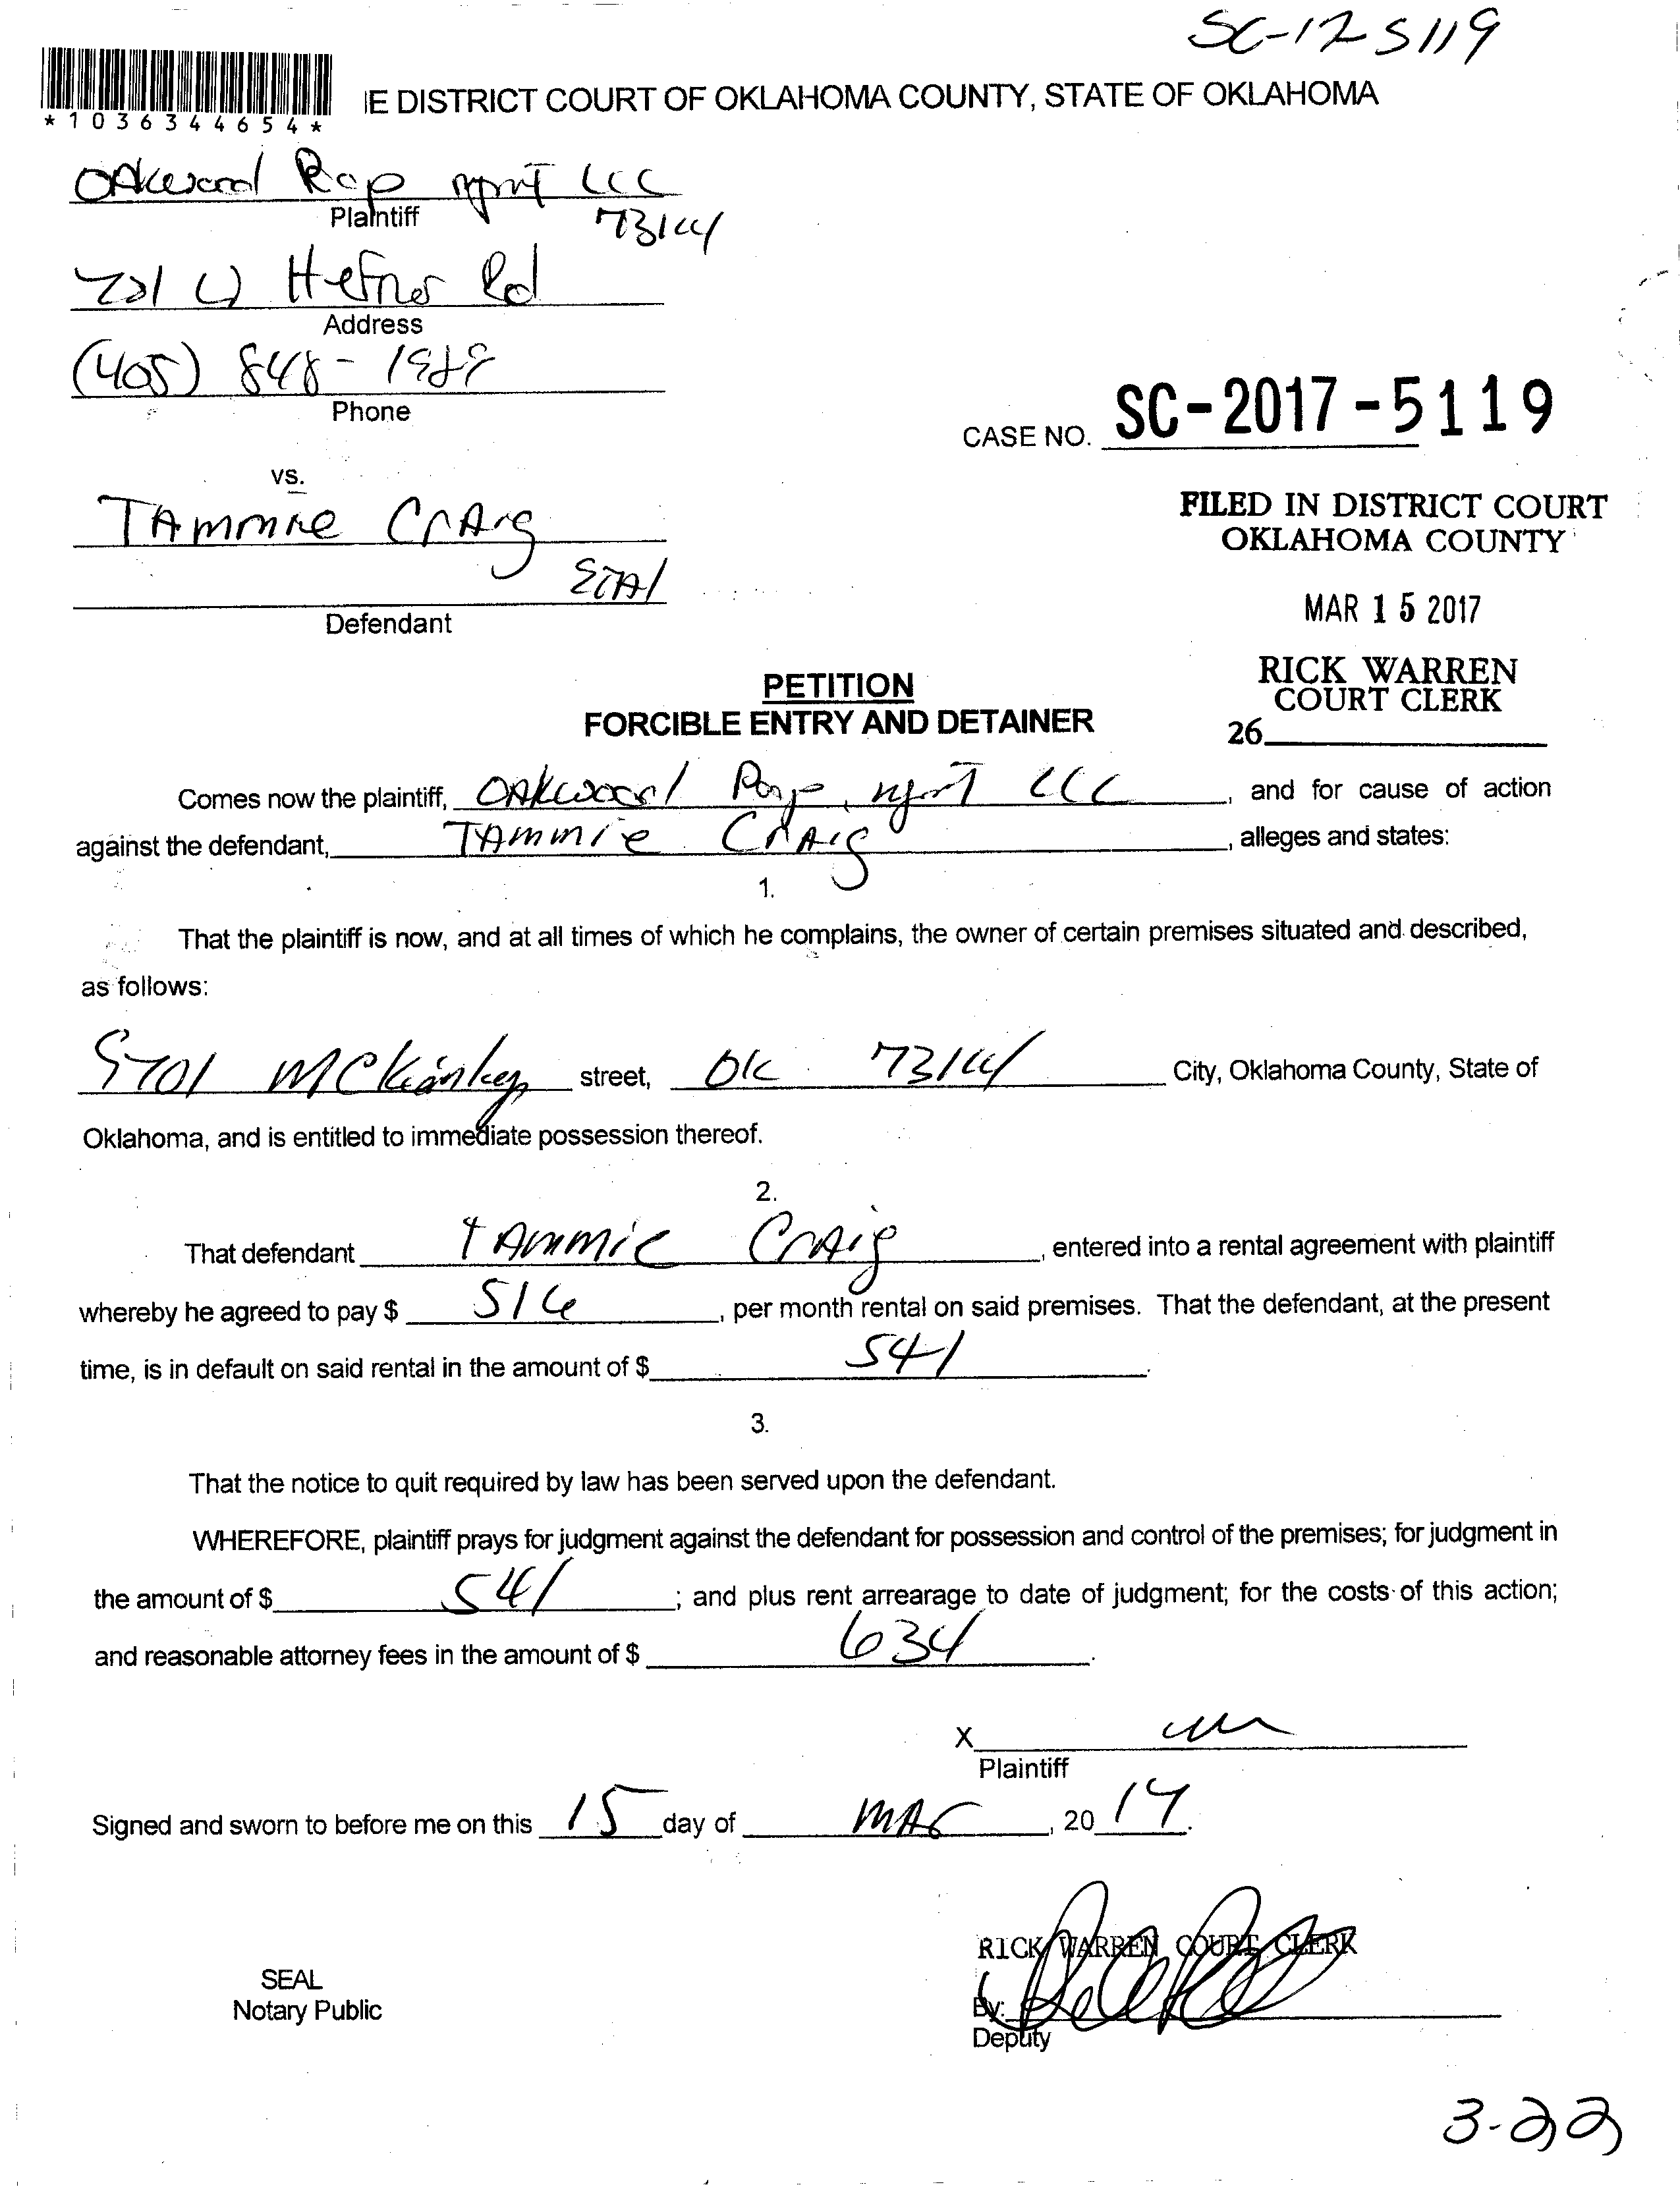 SC-17 5119
*1036344654*
IE DISTRICT COURT OF OKLAHOMA COUNTY, STATE OF OKLAHOMA
OAkwood Rop mgmt LLC
Plaintiff
73114
721 W Hefner Rd
Address
(405) 848-1989
Phone
CASE NO. SC-2017-5119
vs.
FILED IN DISTRICT COURT
OKLAHOMA COUNTY
TAmmie CrAig
ETAl
Defendant
MAR 15 2017
RICK WARREN
COURT CLERK
26
PETITION
FORCIBLE ENTRY AND DETAINER
Comes now the plaintiff, OAkwood Prop mgmt LLC, and for cause of action
against the defendant, TAmmie CrAig, alleges and states:
1.
That the plaintiff is now, and at all times of which he complains, the owner of certain premises situated and described,
as follows:
5701 McKinley street, OK 73114 City, Oklahoma County, State of
Oklahoma, and is entitled to immediate possession thereof.
2.
That defendant tAmmie CrAig, entered into a rental agreement with plaintiff
whereby he agreed to pay $ 516, per month rental on said premises. That the defendant, at the present
time, is in default on said rental in the amount of $ 541.
3.
That the notice to quit required by law has been served upon the defendant.
WHEREFORE, plaintiff prays for judgment against the defendant for possession and control of the premises; for judgment in
the amount of $ 541; and plus rent arrearage to date of judgment; for the costs of this action;
and reasonable attorney fees in the amount of $ 634.
X
Plaintiff
Signed and sworn to before me on this 15 day of MAr, 20 17.
RICK WARREN COURT CLERK
SEAL
Notary Public
By:
Deputy
3-22